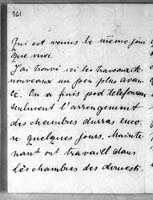 161
qui est venus le même jour
que moi.
J'ai trouvé ici les travaux de
nouveaux un peu plus avan-
cé. On a finis
seulment l'arrengement
des chambres durras enco-
re quelques jours. Mainte-
nant on travaill dans
les chambres des